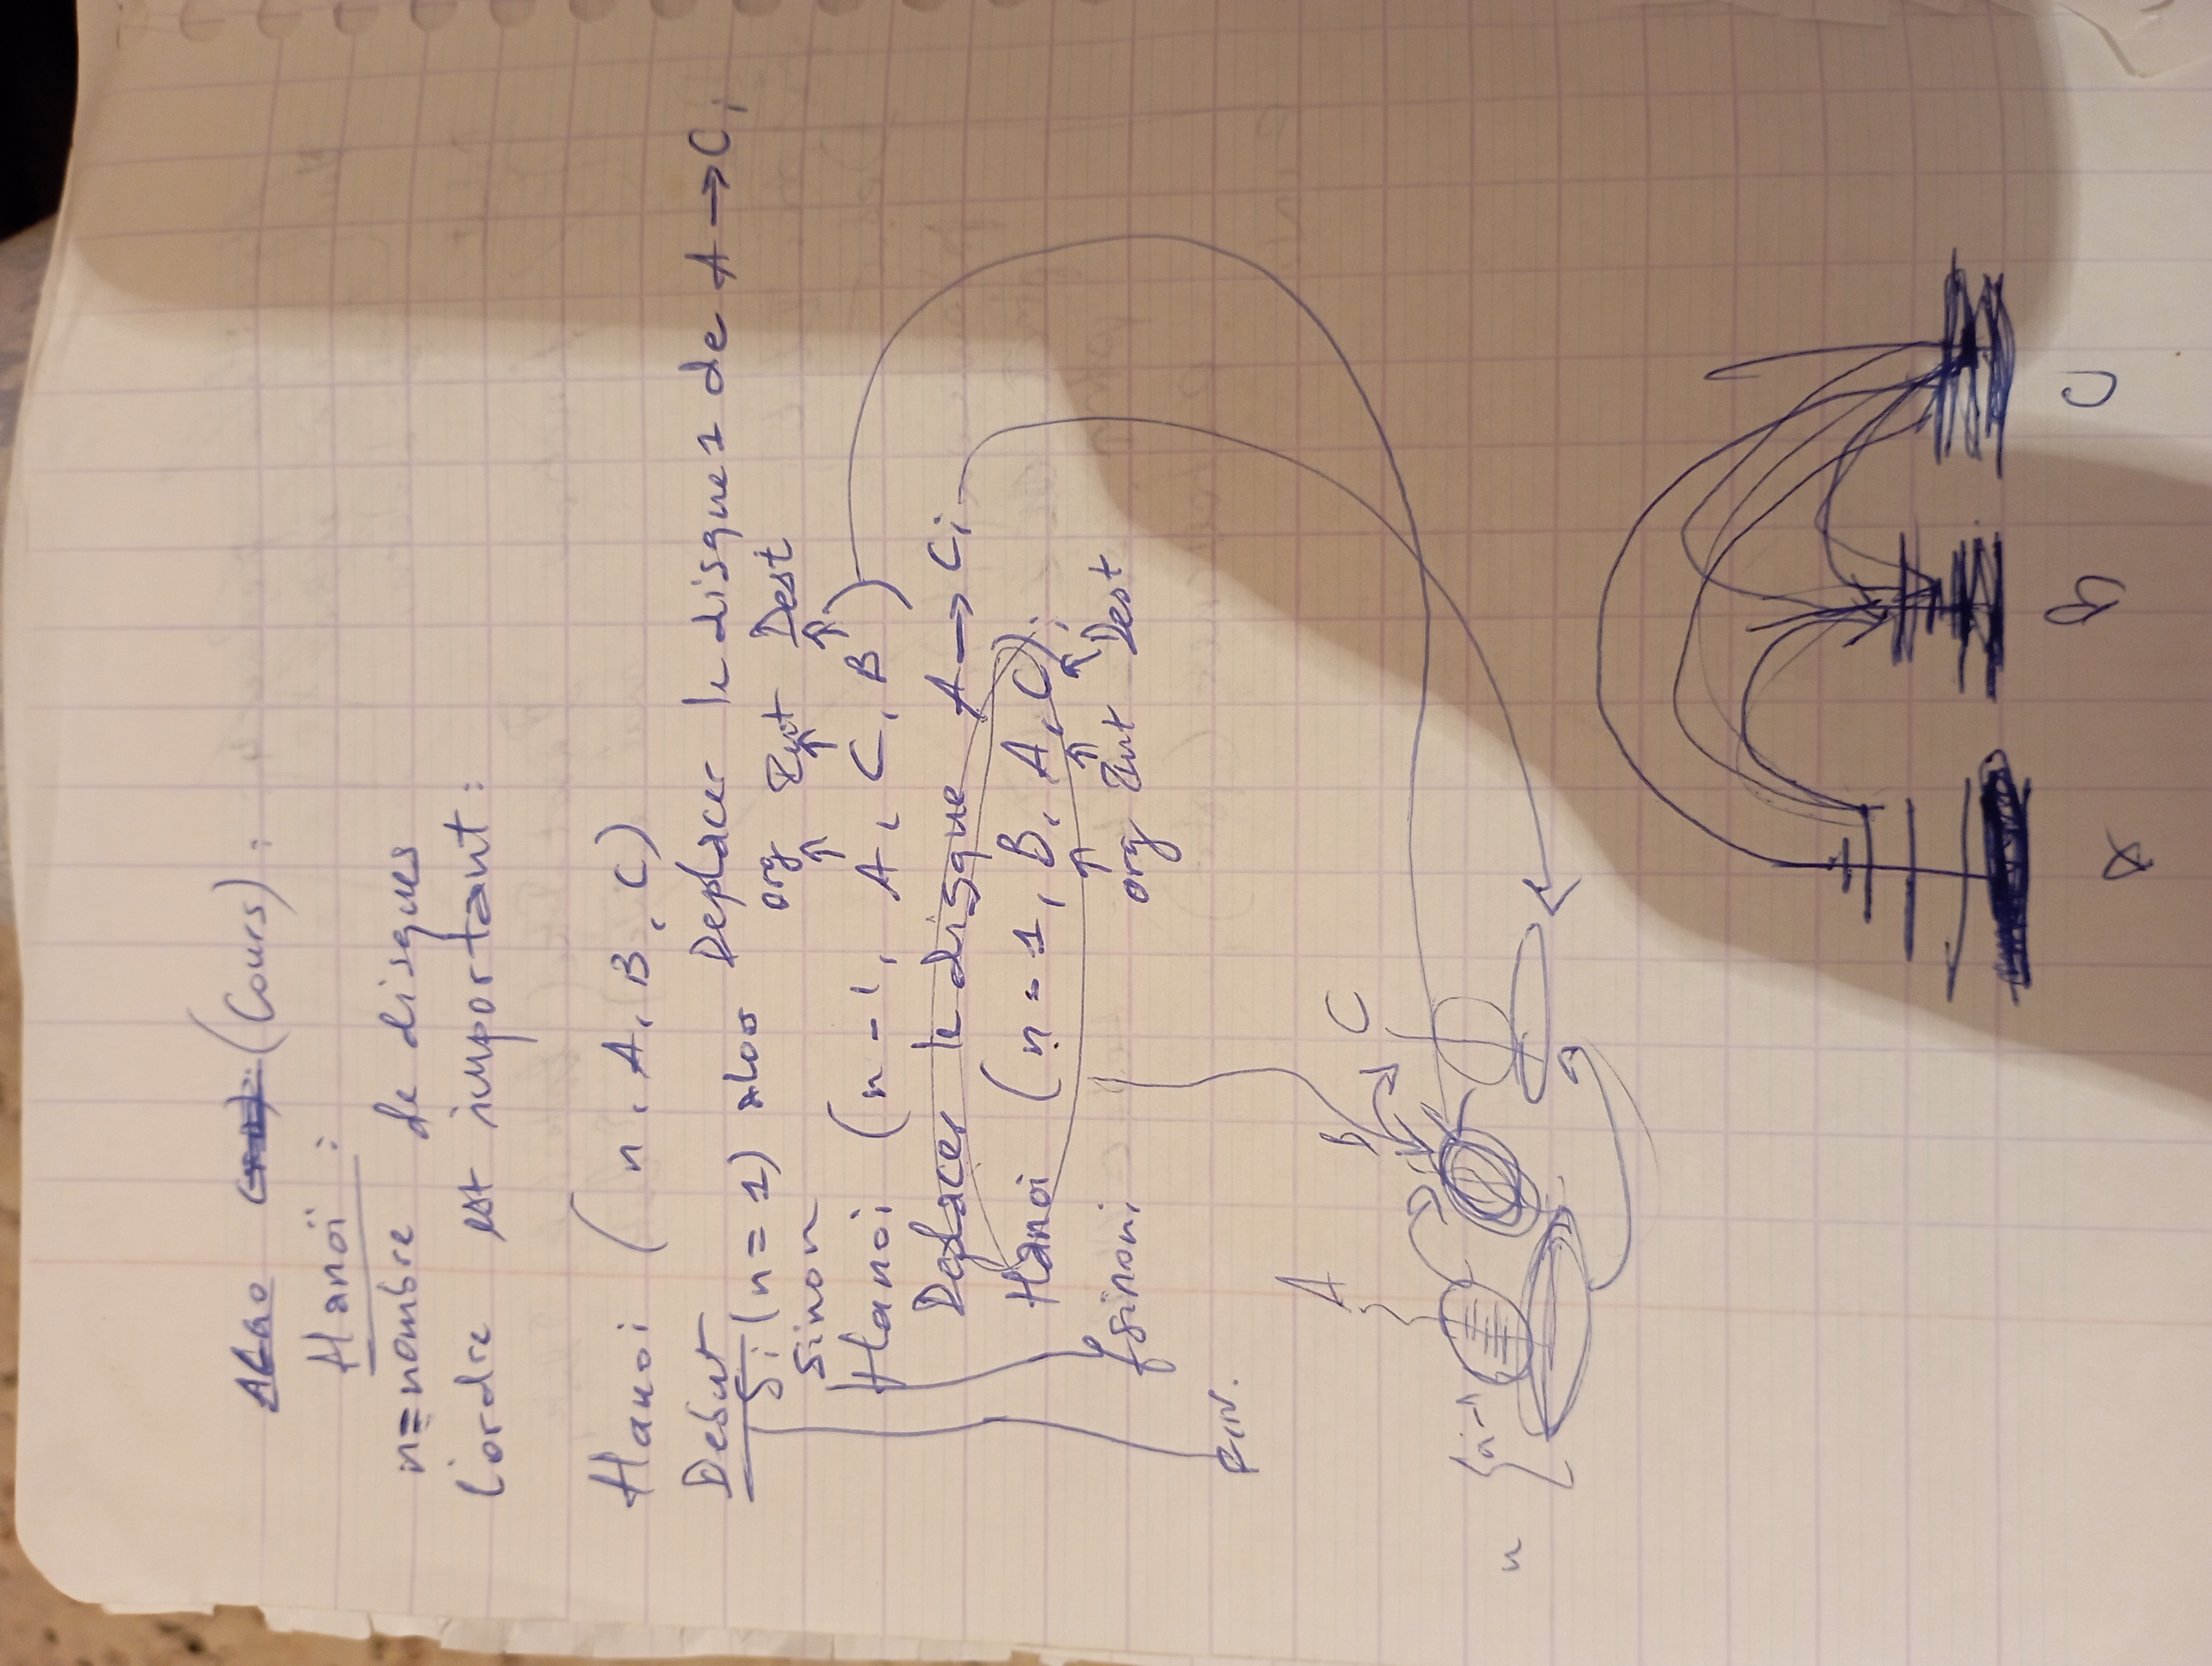 ALGO (Cours) :
Hanoï :
n = nombre de disques
l'ordre est important :
Hanoi ( n, A, B, C )
Debut
Deplacer le disque 1 de A → C;
Si (n = 1) alos
org Int Dest
Sinon
Hanoi ( n - 1, A, C, B )
Deplacer le disque A → C;
Hanoi ( n - 1, B, A, C );
org Int Dest
fsinon;
FIN.
A B C
n n-1
A B C